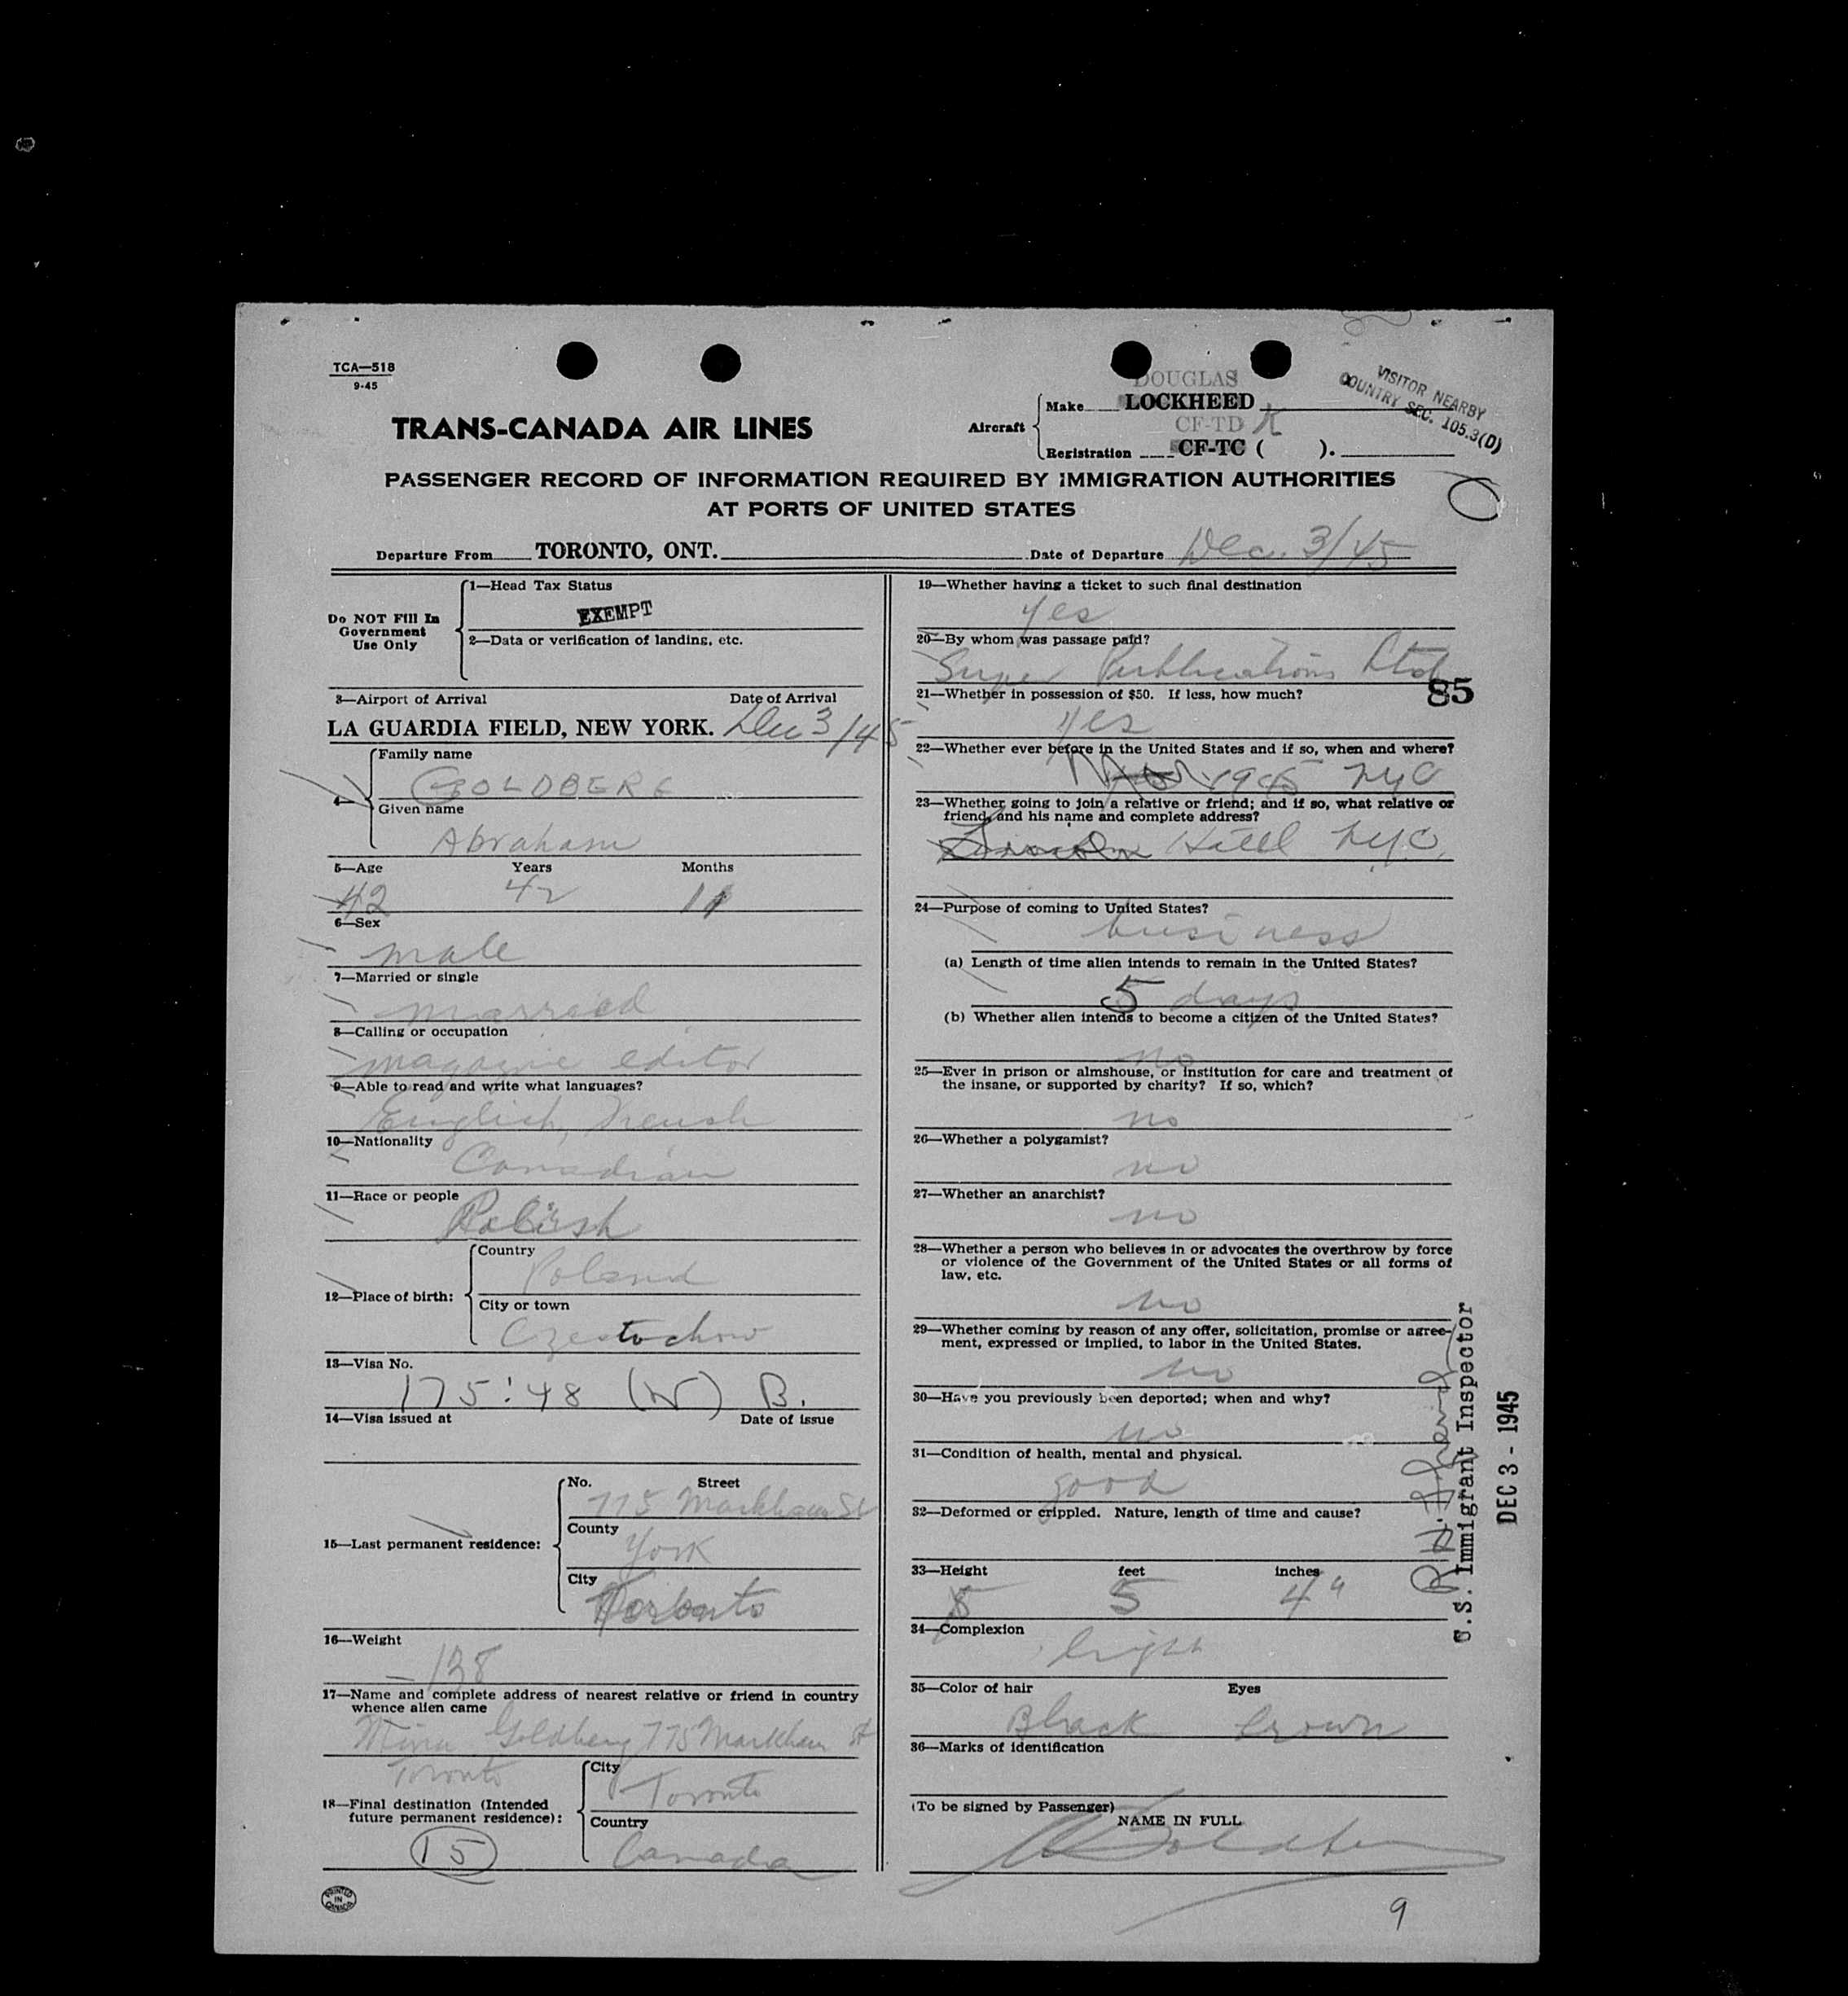 TCA—518
9-45
DOUGLAS
VISITOR NEARBY
COUNTRY SEC. 105.3(D)
TRANS-CANADA AIR LINES
Aircraft
Make LOCKHEED
CF-TD K
Registration CF-TC ( ).
PASSENGER RECORD OF INFORMATION REQUIRED BY IMMIGRATION AUTHORITIES
AT PORTS OF UNITED STATES
Departure From TORONTO, ONT. Date of Departure Dec. 3/45
Do NOT Fill In
Government
Use Only
1—Head Tax Status
EXEMPT
2—Data or verification of landing, etc.
3—Airport of Arrival Date of Arrival
LA GUARDIA FIELD, NEW YORK. Dec 3/45
4—
Family name
GOLDBERG
Given name
Abraham
5—Age Years Months
42 42 11
6—Sex
male
7—Married or single
married
8—Calling or occupation
magazine editor
9—Able to read and write what languages?
English, French
10—Nationality
Canadian
11—Race or people
Polish
12—Place of birth:
Country
Poland
City or town
Czestochow
13—Visa No.
175:48 (N) B.
14—Visa issued at Date of issue
15—Last permanent residence:
No. Street
775 Markham St
County
York
City
Toronto
16—Weight
138
17—Name and complete address of nearest relative or friend in country
whence alien came
Goldberg 775 Markham St
Toronto
18—Final destination (Intended
future permanent residence):
City
Toronto
Country
Canada
15
PRINTED
IN
CANADA
19—Whether having a ticket to such final destination
yes
20—By whom was passage paid?
Super Publications Ltd
85
21—Whether in possession of $50. If less, how much?
yes
22—Whether ever before in the United States and if so, when and where?
1945 NYC
23—Whether going to join a relative or friend; and if so, what relative or
friend, and his name and complete address?
Lincoln Hotel NYC,
24—Purpose of coming to United States?
business
(a) Length of time alien intends to remain in the United States?
5 days
(b) Whether alien intends to become a citizen of the United States?
no
25—Ever in prison or almshouse, or institution for care and treatment of
the insane, or supported by charity? If so, which?
no
26—Whether a polygamist?
no
27—Whether an anarchist?
no
28—Whether a person who believes in or advocates the overthrow by force
or violence of the Government of the United States or all forms of
law, etc.
no
29—Whether coming by reason of any offer, solicitation, promise or agree-
ment, expressed or implied, to labor in the United States.
no
30—Have you previously been deported; when and why?
no
31—Condition of health, mental and physical.
good
32—Deformed or crippled. Nature, length of time and cause?
33—Height feet inches
5 5 4"
34—Complexion
light
35—Color of hair Eyes
Black brown
36—Marks of identification
(To be signed by Passenger)
NAME IN FULL
A Goldberg
U.S. Immigrant Inspector
DEC 3 - 1945
9